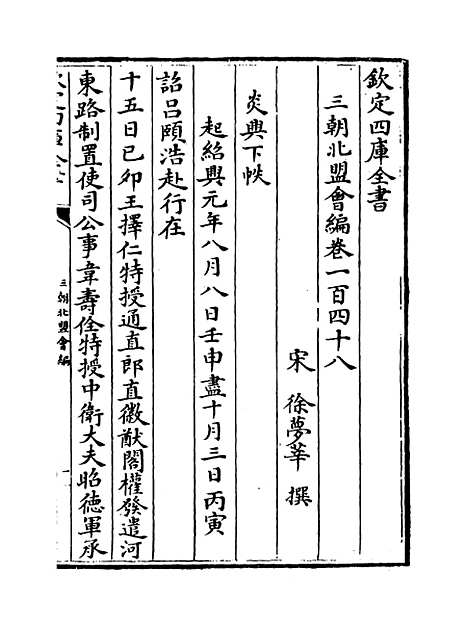 欽定四庫全書
三朝北盟會編卷一百四十八
宋 徐夢莘 撰
炎興下帙
起紹興元年八月八日壬申盡十月三日丙寅
詔呂頤浩赴行在
十五日己卯王擇仁特授通直郎直徽猷閣權發遣河
東路制置使司公事韋壽佺特授中衛大夫昭徳軍承
三朝北盟會編